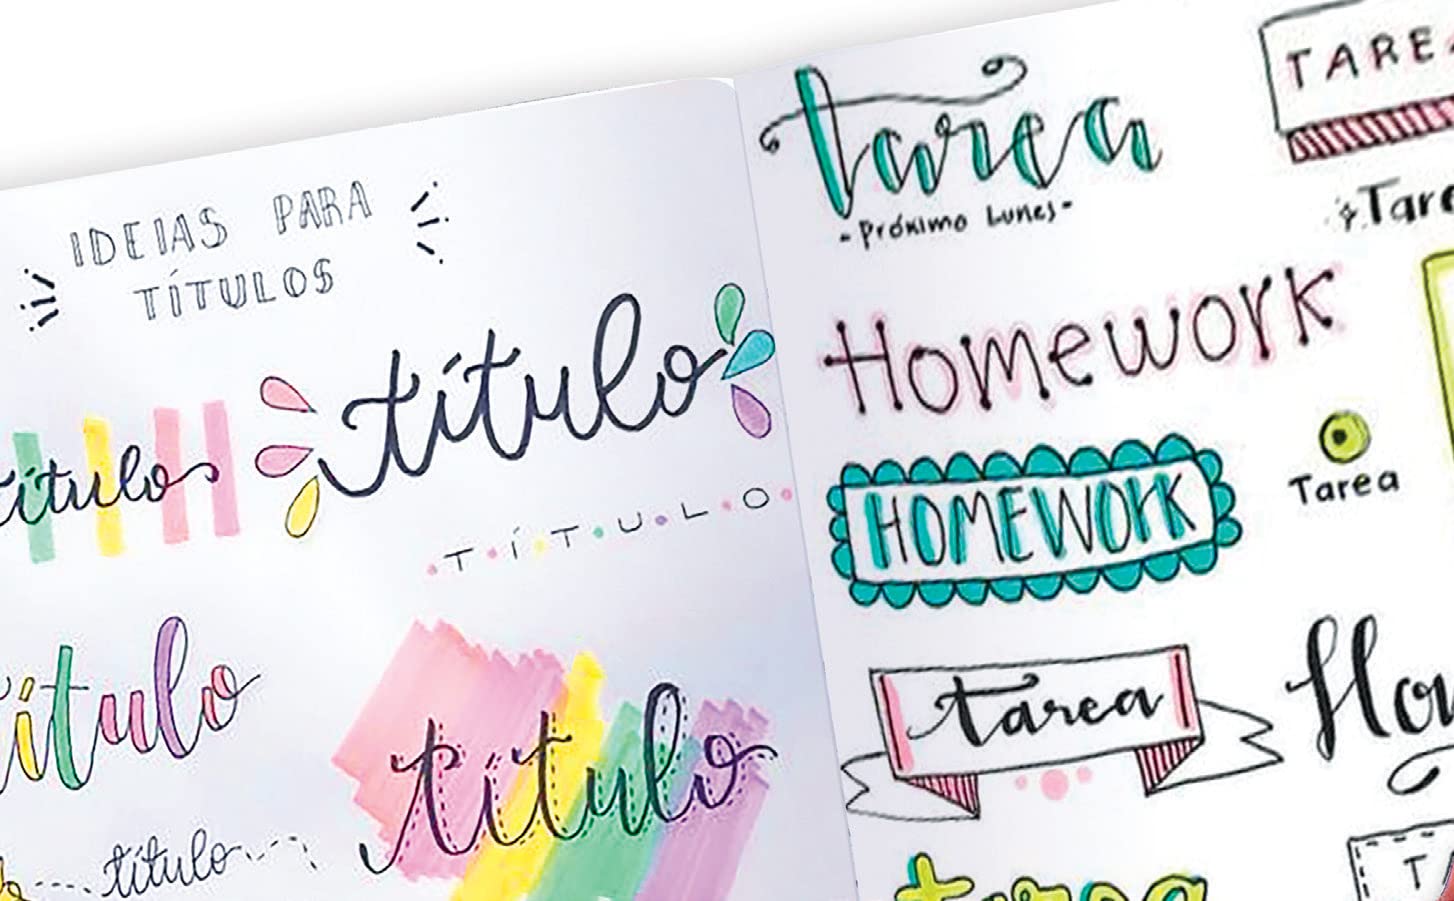 IDEIAS PARA
TÍTULOS
título
título
T·Í·T·U·L·O
título
título
título
tarea
- Próximo Lunes -
TAREA
Tarea
Homework
HOMEWORK
Tarea
tarea
tarea